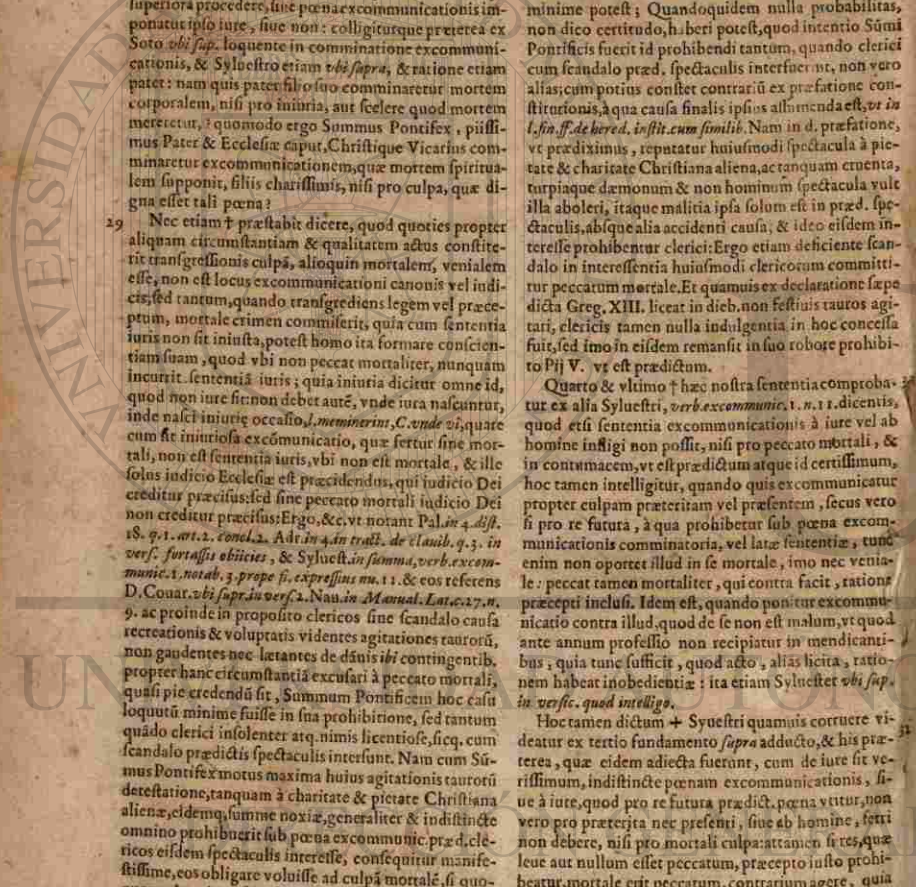 superiora procedere, siue pœna excommunicationis im-
ponatur ipso iure, siue non: colligiturque præterea ex
Soto vbi sup. loquente in comminatione excommuni-
cationis, & Syluestro etiam vbi supra, & ratione etiam
patet: nam quis pater filio suo comminaretur mortem
corporalem, nisi pro iniuria, aut scelere quod mortem
mereretur, ? quomodo ergo Summus Pontifex, piissi-
mus Pater & Ecclesiæ caput, Christique Vicarius com-
minaretur excommunicationem, quæ mortem spiritua-
lem supponit, filiis charissimis, nisi pro culpa, quæ di-
gna esset tali pœna?
29 Nec etiam † præstabit dicere, quod quoties propter
aliquam circumstantiam & qualitatem actus constite-
rit transgressionis culpã, alioquin mortalem, venialem
esse, non est locus excommunicationi canonis vel iudi-
cis, sed tantum, quando transgrediens legem vel præce-
ptum, mortale crimen commiserit, quia cum sententia
iuris non sit iniusta, potest homo ita formare conscien-
tiam suam, quod vbi non peccat mortaliter, nunquam
incurrit sententiã iuris; quia iniuria dicitur omne id,
quod non iure fit: non debet autẽ, vnde iura nascuntur,
inde nasci iniurię occasio, l. meminerint, C. vnde vi, quare
cum sit iniuriosa excõmunicatio, quæ fertur sine mor-
tali, non est sententia iuris, vbi non est mortale, & ille
solus iudicio Ecclesiæ est præcidendus, qui iudicio Dei
creditur præcisus: sed sine peccato mortali iudicio Dei
non creditur præcisus: Ergo, &c. vt notant Pal. in 4. dist.
18. q. 1. art. 2. concl. 2. Adr. in 4. in tract. de clauib. q. 3. in
vers. fortassis obiicies, & Syluest. in summa, verb. excom-
munic. 1. notab. 3. prope fi. expressius nu. 11. & eos referens
D. Couar. vbi supr. in vers. 2. Nau. in Manual. Lat. c. 27. n.
9. ac proinde in proposito clericos sine scandalo causa
recreationis & voluptatis videntes agitationes taurorũ,
non gaudentes nec lætantes de dãnis ibi contingentib.
propter hanc circumstantiã excusari à peccato mortali,
quasi pie credendũ sit, Summum Pontificem hoc casu
loquutũ minime fuisse in sua prohibitione, sed tantum
quãdo clerici insolenter atq. nimis licentiose, sicq. cum
scandalo prædictis spectaculis intersunt. Nam cum Sũ-
mus Pontifex motus maxima huius agitationis taurorũ
detestatione, tanquam à charitate & pietate Christiana
alienæ, eidemq; summe noxiæ, generaliter & indistincte
omnino prohibuerit sub pœna excommunic. præd. cle-
ricos eisdem spectaculis interesse, consequitur manife-
stissime, eos obligare voluisse ad culpã mortalẽ, si quo-
minime potest; Quandoquidem nulla probabilitas,
non dico certitudo, haberi potest, quod intentio Sũmi
Pontificis fuerit id prohibendi tantum, quando clerici
cum scandalo præd. spectaculis interfuerint, non vero
alias; cum potius constet contrariũ ex præfatione con-
stitutionis, à qua causa finalis ipsius assumenda est, vt in
l. fin. ff. de hered. instit. cum similib. Nam in d. præfatione,
vt prædiximus, reputatur huiusmodi spectacula à pie-
tate & charitate Christiana aliena, ac tanquam cruenta,
turpiaque dæmonum & non hominum spectacula vult
illa aboleri, itaque malitia ipsa solum est in præd. spe-
ctaculis, absque alia accidenti causa, & ideo eisdem in-
teresse prohibentur clerici: Ergo etiam deficiente scan-
dalo in interessentia huiusmodi clericorum committi-
tur peccatum mortale. Et quamuis ex declaratione sæpe
dicta Greg. XIII. liceat in dieb. non festiuis tauros agi-
tari, clericis tamen nulla indulgentia in hoc concessa
fuit, sed imo in eisdem remansit in suo robore prohibi-
to Pij V. vt est prædictum.
Quarto & vltimo † hæc nostra sententia comproba-
tur ex alia Syluestri, verb. excommunic. 1. n. 11. dicentis,
quod etsi sententia excommunicationis à iure vel ab
homine infligi non possit, nisi pro peccato mortali, &
in contumacem, vt est prædictum atque id certissimum,
hoc tamen intelligitur, quando quis excommunicatur
propter culpam præteritam vel præsentem, secus vero
si pro re futura, à qua prohibetur sub pœna excom-
municationis comminatoria, vel latæ sententiæ, tunc
enim non oportet illud in se mortale, imo nec venia-
le: peccat tamen mortaliter, qui contra facit, ratione
præcepti inclusi. Idem est, quando ponitur excommu-
nicatio contra illud, quod de se non est malum, vt quod
ante annum professio non recipiatur in mendicanti-
bus, quia tunc sufficit, quod acto, alias licita, ratio-
nem habeat inobedientiæ: ita etiam Syluester vbi sup.
in versic. quod intelligo.
Hoc tamen dictum + Syuestri quamuis corruere vi-
deatur ex tertio fundamento supra adducto, & his præ-
terea, quæ eidem adiecta fuerunt, cum de iure sit ve-
rissimum, indistincte pœnam excommunicationis, si-
ue à iure, quod pro re futura prædict. pœna vtitur, non
vero pro præterita nec presenti, siue ab homine, ferri
non debere, nisi pro mortali culpa: attamen si res, quæ
leue aut nullum esset peccatum, præcepto iusto prohi-
beatur, mortale erit peccatum, contrarium agere, quia